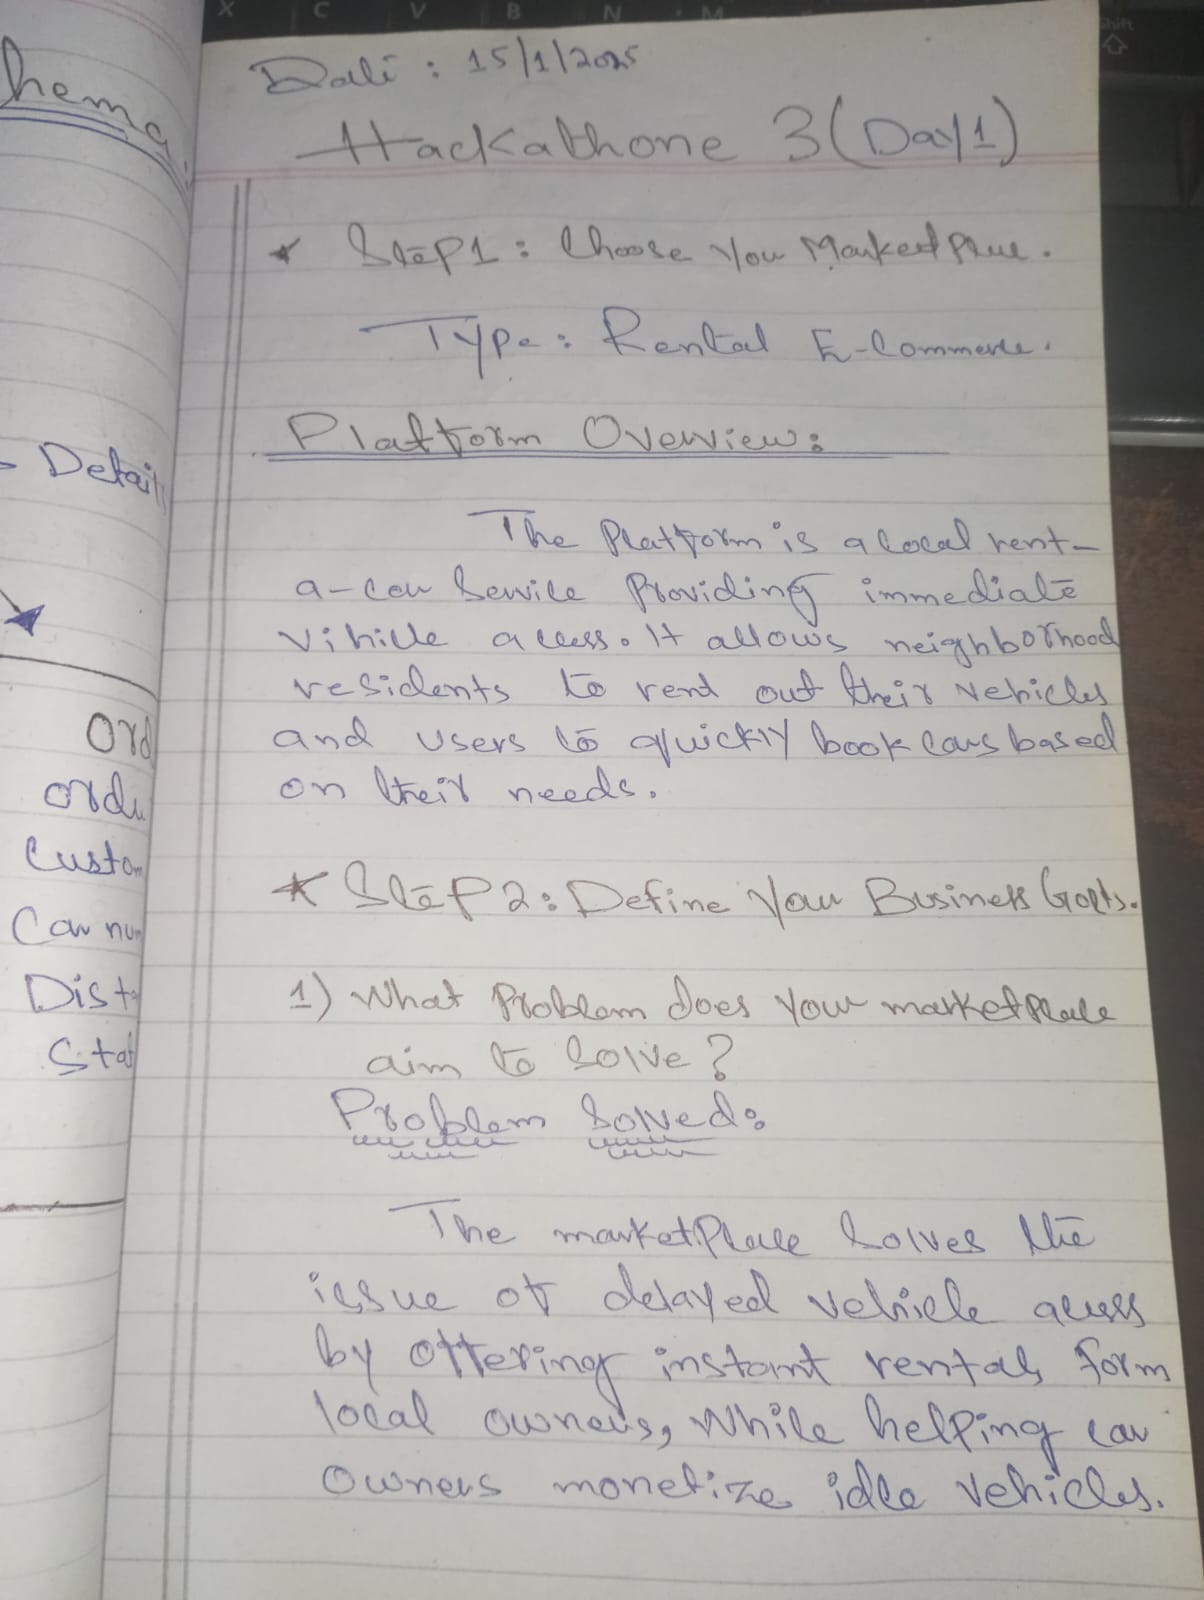 hema
- Detail
Ord
ordu
Custom
Car num
Dist
Stat
X C V B N M
Shift
Date : 15/1/2025
Hackathone 3 (Day 1)
* Step 1 : Choose You Market Place.
Type : Rental E-Commerce.
Platform Overview :
The Platform is a local rent-
a-car Service Providing immediate
vihicle access. It allows neighborhood
residents to rent out their vehicles
and users to quickly book cars based
on their needs.
* Step 2 : Define Your Business Goals.
1) What Problem does your marketplace
aim to Solve ?
Problem Solved :
The marketplace Solves the
issue of delayed vehicle access
by offering instant rentals form
local owners, While helping car
owners monetize idle vehicles.